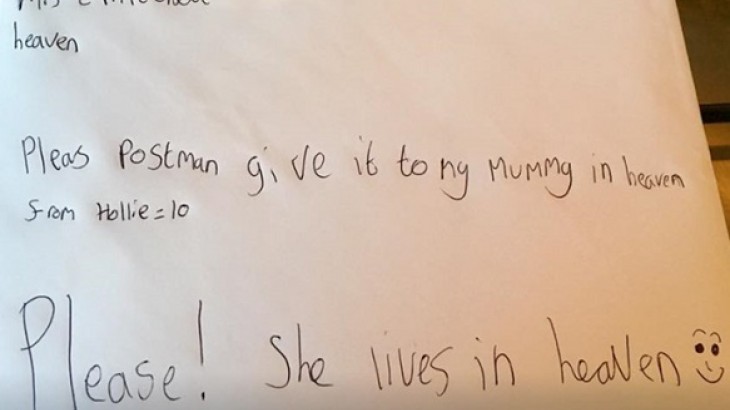 heaven
Pleas Postman give it to my Mummy in heaven
from Hollie = 10
Please! She lives in heaven